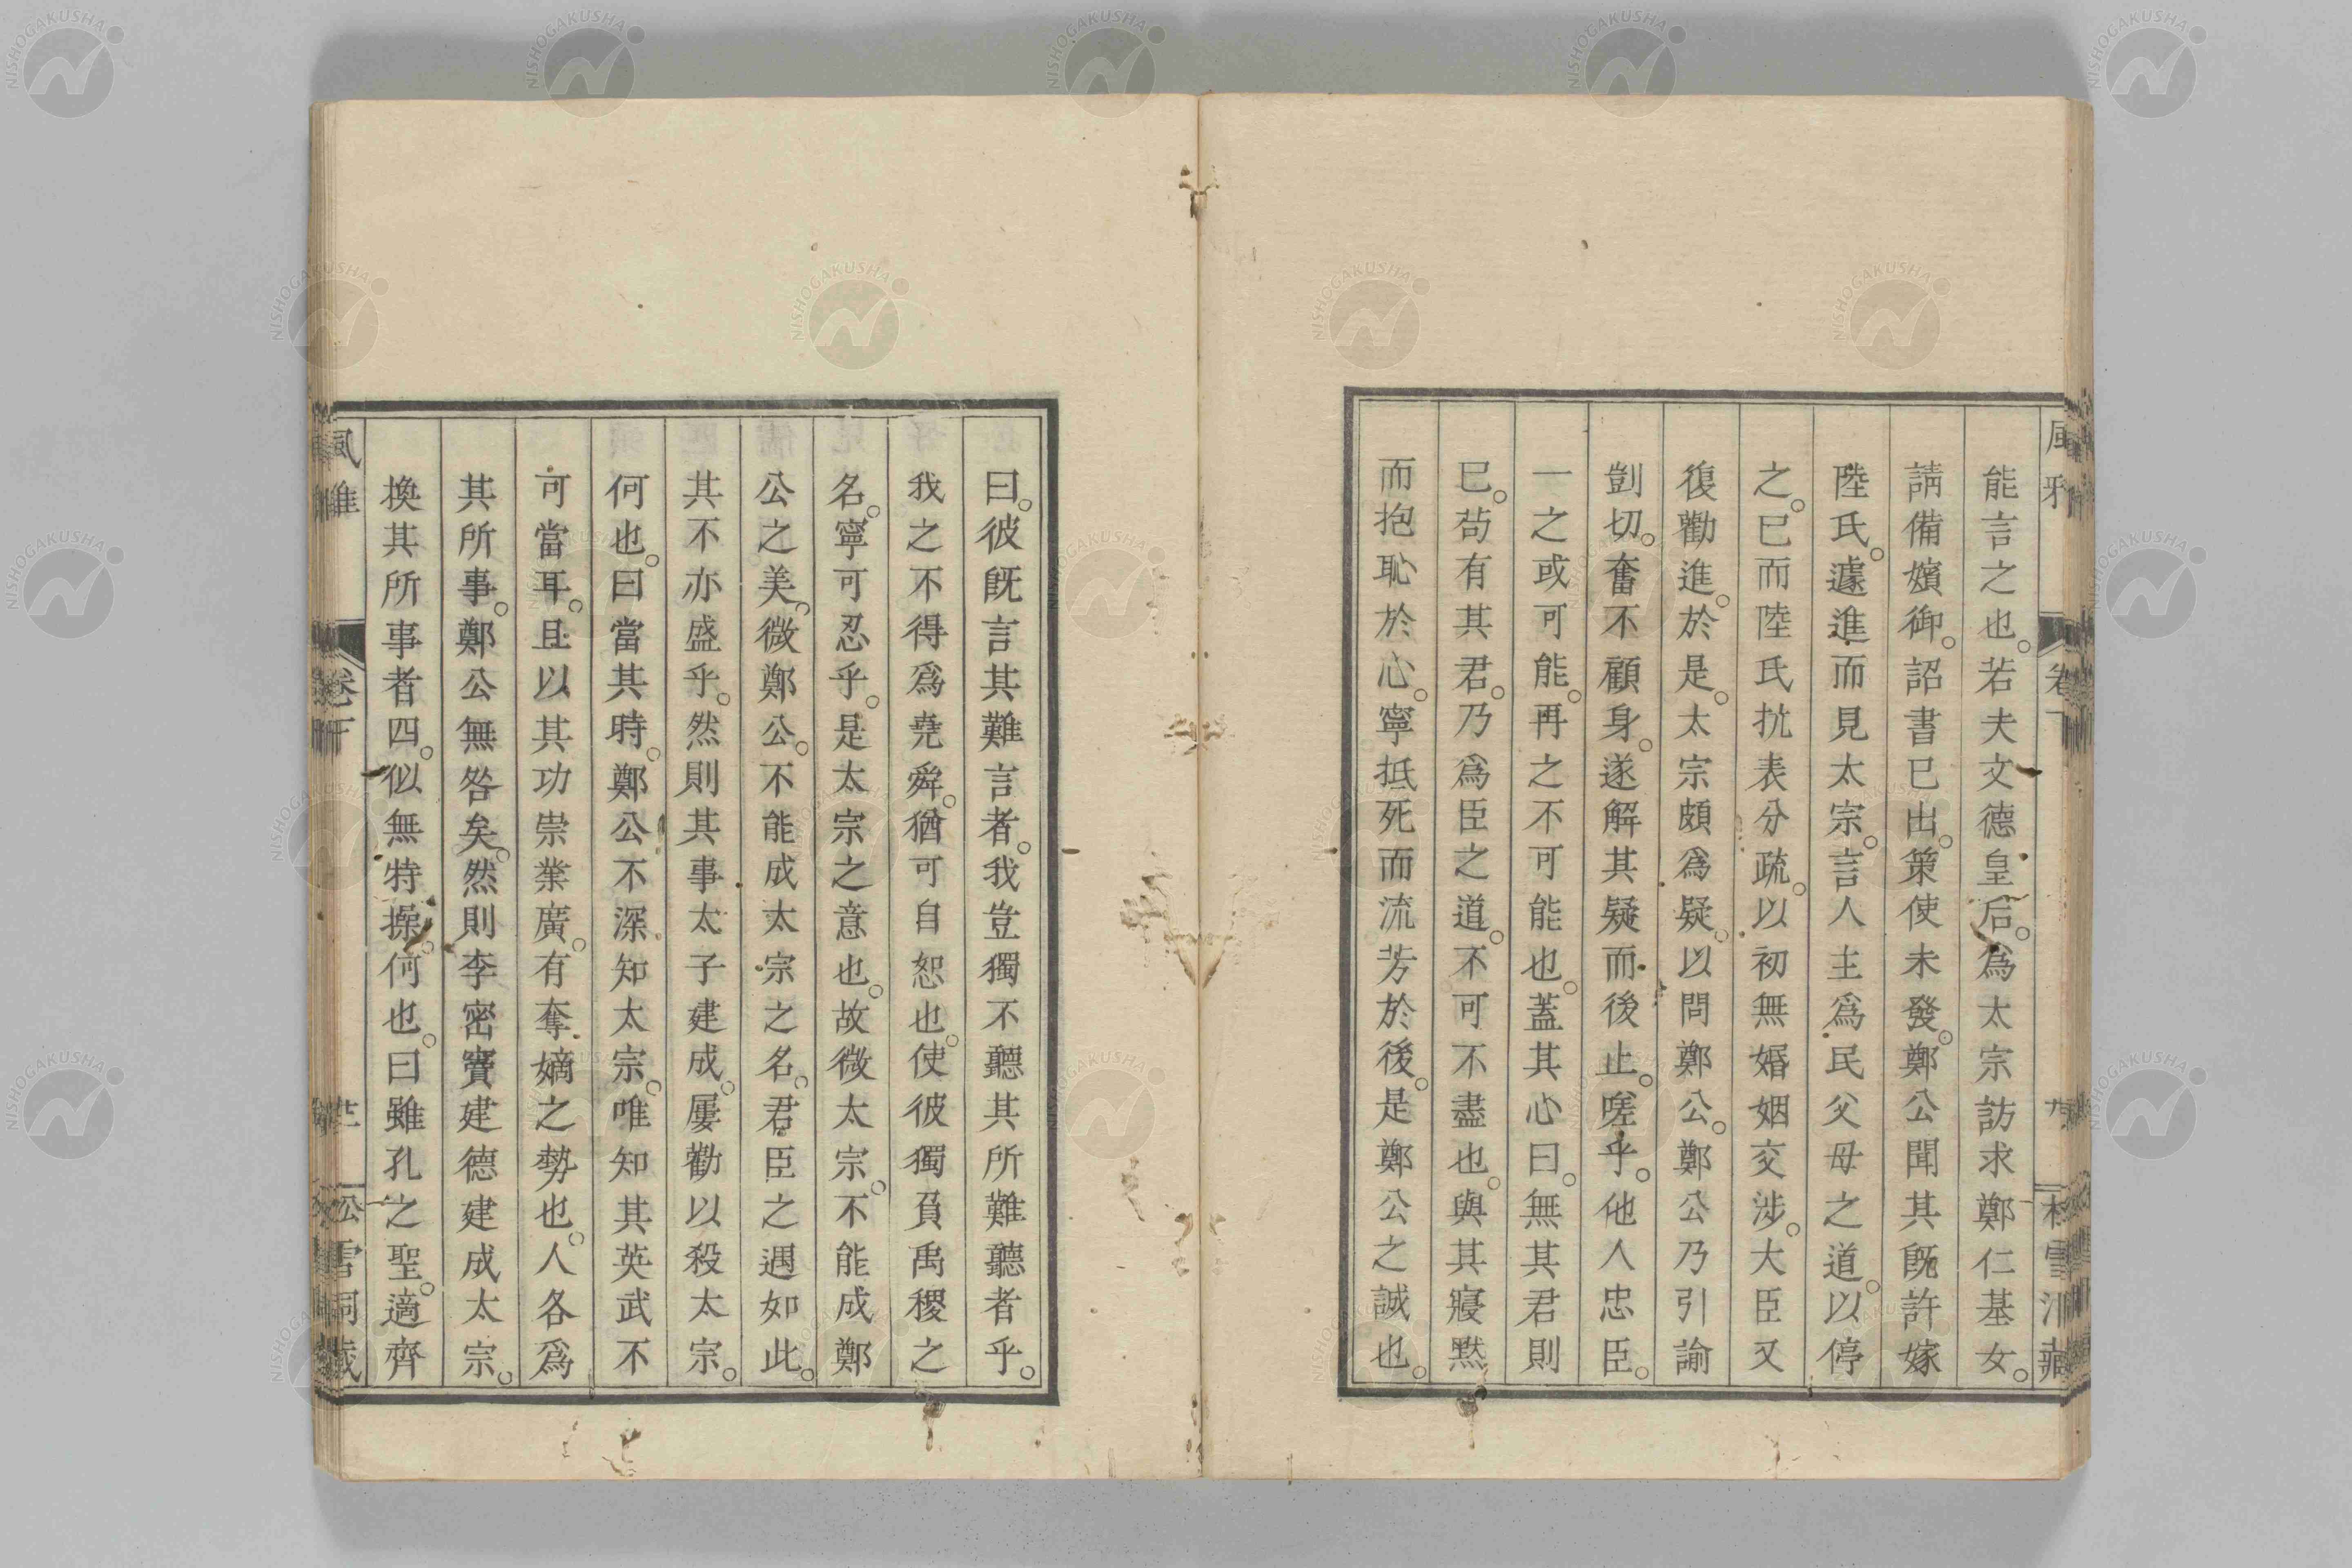 能言之也。若夫文德皇后。爲太宗訪求鄭仁基女。
請備嬪御。詔書已出。策使未發。鄭公聞其既許嫁
陸氏。遽進而見太宗。言人主爲民父母之道。以停
之。已而陸氏抗表分疏。以初無婚姻交涉。大臣又
復勸進。於是。太宗頗爲疑。以問鄭公。鄭公乃引諭
剴切。奮不顧身。遂解其疑而後止。嗟乎。他人忠臣。
一之或可能。再之不可能也。蓋其心曰。無其君則
已。苟有其君。乃爲臣之道。不可不盡也。與其寢默
而抱恥於心。寧抵死而流芳於後。是鄭公之誠也。
曰。彼旣言其難言者。我豈獨不聽其所難聽者乎。
我之不得爲堯舜。猶可自恕也。使彼獨負禹稷之
名。寧可忍乎。是太宗之意也。故微太宗。不能成鄭
公之美。微鄭公。不能成太宗之名。君臣之遇如此。
其不亦盛乎。然則其事太子建成。屢勸以殺太宗。
何也。曰當其時。鄭公不深知太宗。唯知其英武不
可當耳。且以其功崇業廣。有奪嫡之勢也。人各爲
其所事。鄭公無咎矣。然則李密竇建德建成太宗。
換其所事者四。似無特操。何也。曰雖孔之聖。適齊
風雅
卷下
松雪洞藏